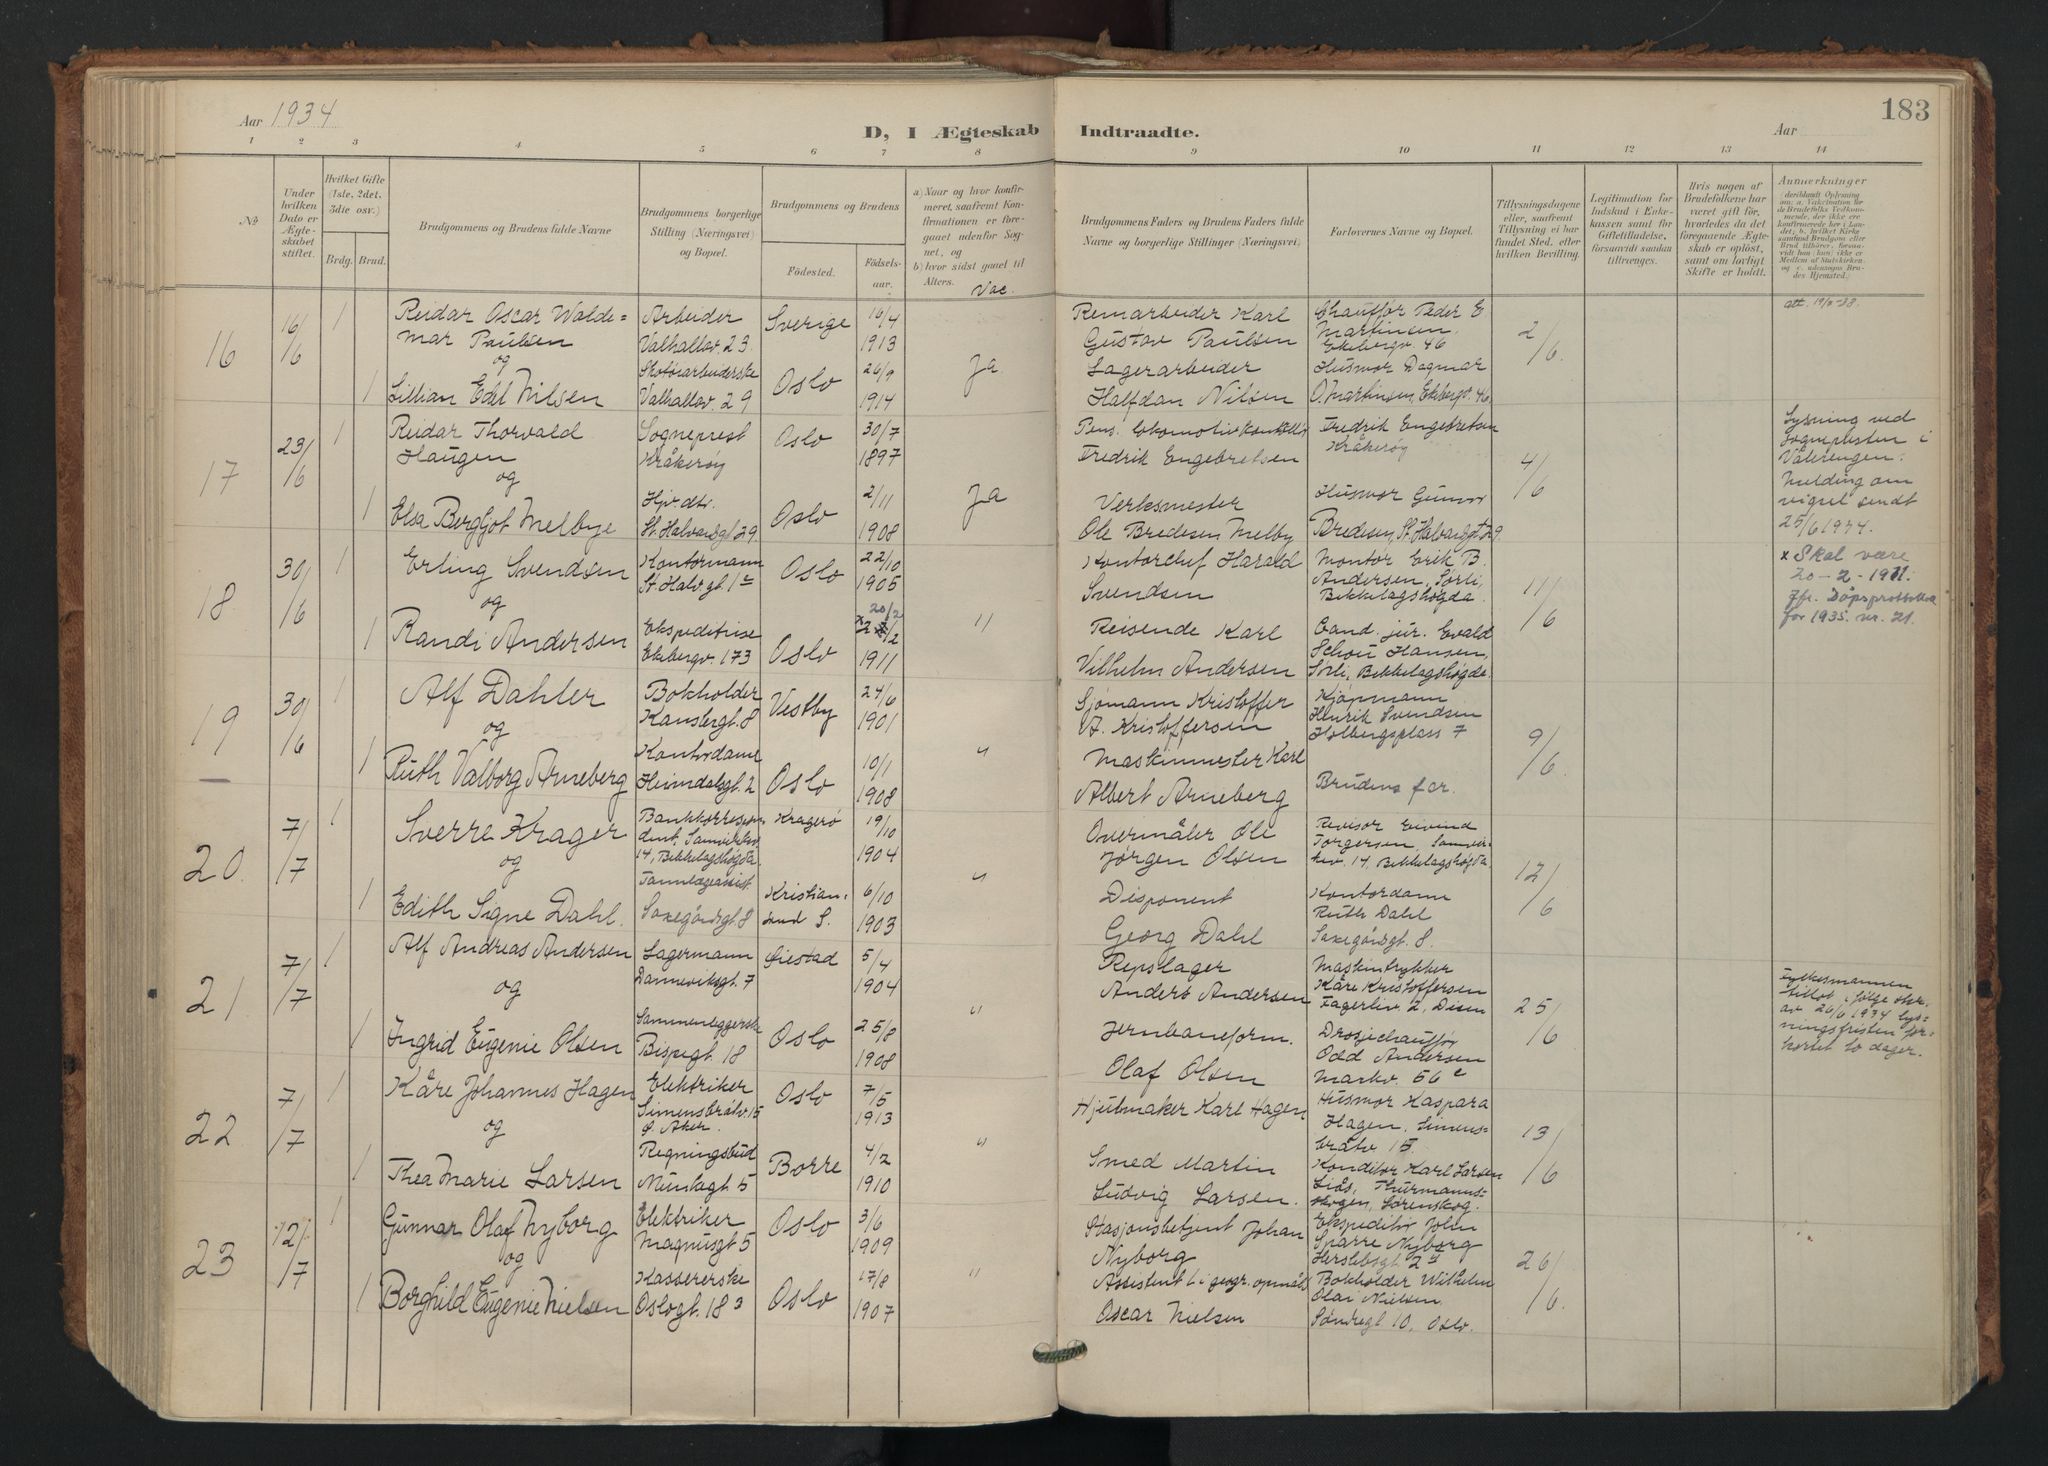 183
Aar 1934
D, I Ægteskab Indtraadte.
Aar
1 2 3 4 5 6 7 8 9 10 11 12 13 14
№
Under hvilken Dato er Ægteskabet stiftet.
Hvilket Gifte (1ste, 2det, 3die osv.)
Brdg. Brud.
Brudgommens og Brudens fulde Navne
Brudgommens borgerlige Stilling (Næringsvei) og Bopæl.
Brudgommens og Brudens
Fødested.
Fødselsaar.
a) Naar og hvor konfirmeret, saafremt Konfirmationen er foregaaet udenfor Sognet, og
b) hvor sidst gaaet til Alters.
Vac.
Brudgommens Faders og Brudens Faders fulde Navne og borgerlige Stillinger (Næringsvei).
Forlovernes Navne og Bopæl.
Tillysningsdagene eller, saafremt Tillysning ei har fundet Sted, efter hvilken Bevilling.
Legitimation for Indskud i Enkekassen samt for Giftetilladelse, forsaavidt saadan tiltrænges.
Hvis nogen af Brudefolkene har været gift før, hvorledes da det foregaaende Ægteskab er opløst, samt om lovligt Skifte er holdt.
Anmerkninger
16 16/6 1
Reidar Oscar Waldemar Paulsen
og
Arbeider
Valhallav. 23
Sverige
16/4 1913
Remarbeider Karl
Gustav Paulsen
Chauffør Peder E
Martinsen
Ekebergv 46
2/6
1
Lillian Edel Nilsen
Skotøiarbeiderske
Valhallav. 29
Oslo
26/9 1914
Ja
Lagerarbeider
Halfdan Nilsen
Husmor Dagmar
O. Martinsen, Ekebergv. 46.
17 23/6 1
Reidar Thorvald
Haugen
og
Sogneprest
Kråkerøy
Oslo
30/7 1897
Fredrik Engebretsen
Fredrik Engebretsen
Kråkerøy
4/6
Lysning ved
Sognepresten i
Vålerengen.
Melding om
vigsel sendt
25/6 1934.
1
Elsa Bergljot Melbye
Hjv. dtr.
St. Halvardsgt 29
Oslo
2/11 1908
Ja
Verksmester
Ole Bredesen Melby
Husmor Gunvor
Bredesen, St. Halvardsgt 29.
18 30/6 1
Erling Svendsen
og
Kontormann
St. Halv. gt. 1c
Oslo
22/10 1905
Kontorchef Harald
Svendsen
Montør Erik B.
Andersen, Sørli,
Bekkelagshøgda
11/6
x Skal være
20-2-1911.
Jfr. Dåpsprotokoll
for 1935. nr. 21.
1
Randi Andersen
Ekspeditrise
Ekebergv. 173
Oslo
20/2
1911
"
Reisende Karl
Vilhelm Andersen
Cand. jur. Evald
Schou Hansen,
Sørli, Bekkelagshøgda.
19 30/6 1
Alf Dahler
og
Bokholder
Kansbergt. 8
Vestby
24/6 1901
Sjømann Kristoffer
A. Kristoffersen
Kjøpmann
Henrik Svendsen
Holbergsplass 7
9/6
1
Ruth Valborg Arneberg
Kontordame
Heimdalsgt. 2
Oslo
10/1 1908
"
Maskinmester Karl
Albert Arneberg
Brudens far.
20. 7/7 1
Sverre Krager
og
14, Bekkelagshøgda.
Kragerø
19/10 1904
Overmåler Ole
Jørgen Olsen
Revisor Eivind
Torgersen,
14, Bekkelagshøgda
12/6
1
Edith Signe Dahl.
Tannlægeassist.
Saxegårdsgt. 8
Kristiansund S.
6/10 1903
"
Disponent
Georg Dahl
Kontordame
Ruth Dahl
Saxegårdsgt. 8.
21. 7/7 1
Alf Andreas Andersen
og
Lagermann
Dannevirksgt. 7
Øiestad
5/4 1904
Repslager
Anders Andersen
Maskintrykker
Kåre Kristoffersen
Fagerliv. 2, Disen
25/6
Fylkesmannen
tillot i følge skr.
av 26/6 1934 lysningsfristen forkortet to dager.
1
Ingrid Eugenie Olsen
Sammenleggerske
Bispegt. 18
Oslo
25/8 1908
"
Jernbaneform.
Olaf Olsen
Drosjechauffør
Odd Andersen
Markv. 56 c
22. 7/7 1
Kåre Johannes Hagen
og
Elektriker
Simensbråtv. 15
Ø. Aker.
Oslo
7/5 1913
Hjulmaker Karl Hagen
Husmor Kaspara
Hagen, Simensbråtv 15.
13/6
1
Thea Marie Larsen
Regningsbud
Munkegt 5
Borre
4/2 1910
"
Smed Martin
Ludvig Larsen.
Konditor Karl Larsen
Liås, Thurmannsskogen, Lørenskog.
23 12/7 1
Gunnar Olaf Nyborg
og
Elektriker
Magnusgt 5
Oslo
3/6 1909
Stasjonsbetjent Johan
Nyborg
Ekspeditør John
Sparre Nyborg
Herslebsgt.
26/6
1
Borghild Eugenie Nielsen
Kassererske
Oslogt. 18
Oslo
17/8 1907
"
Assistent i geogr. opmål
Oscar Nielsen
Bokholder Wilhelm
Olai Nielsen
Søndregt 10, Oslo.